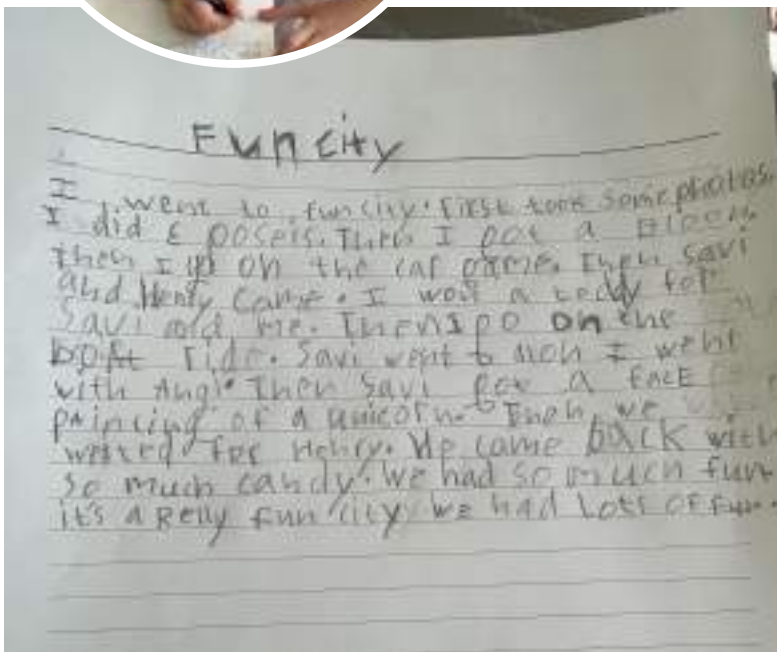 Fun city
I went to fun city. First took some photos.
I did 6 poseis. Then I got a
then I go on the car game. Then Savi
and Henry came. I won a teddy for
Savi and me. Then I go on the
boat ride. Savi went to I went
with Then Savi got a face
painting of a unicorn. Then we
for Henry. He came back with
so much candy. We had so much fun
it's a Relly fun city we had lots of fun.